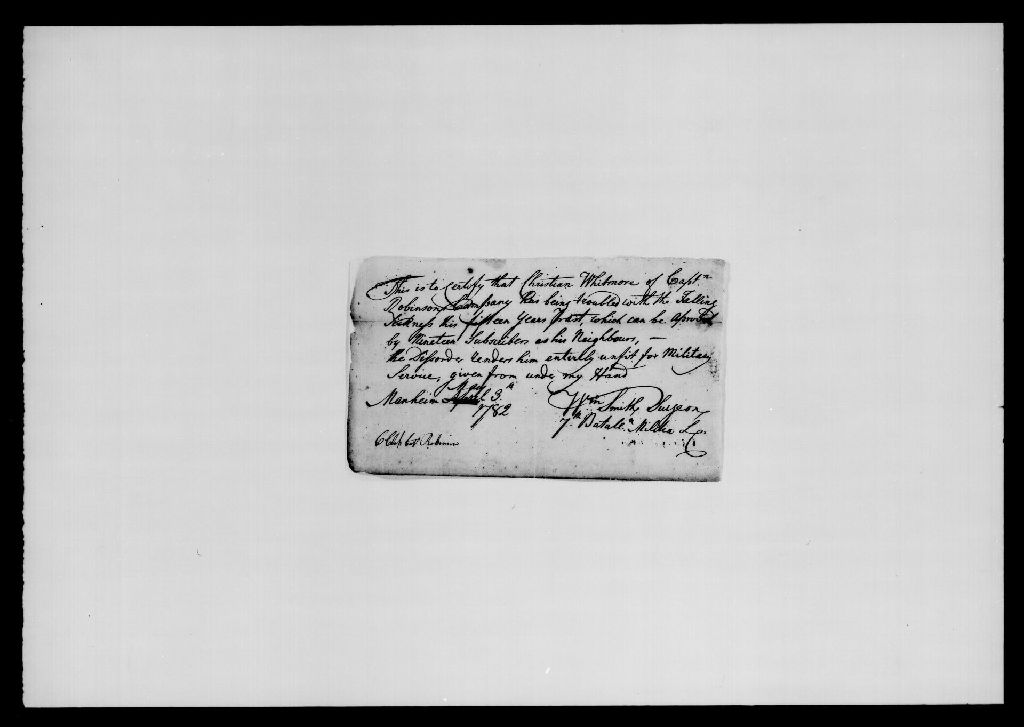 This is to Certify that Christian Whitmore of Capt.n
Robinsons Company Has being troubled with the Falling
Sickness this fifteen Years Past, which can be
by Nineteen Subscribers as his Neighbours, —
the Dissorder renders him enterlly unfit for Military
Service, given from under my Hand
May
Manheim April 3.d
1782
Wm Smith Surgeon
7th Batall.n Militia L.C.
6 Capt Robinson